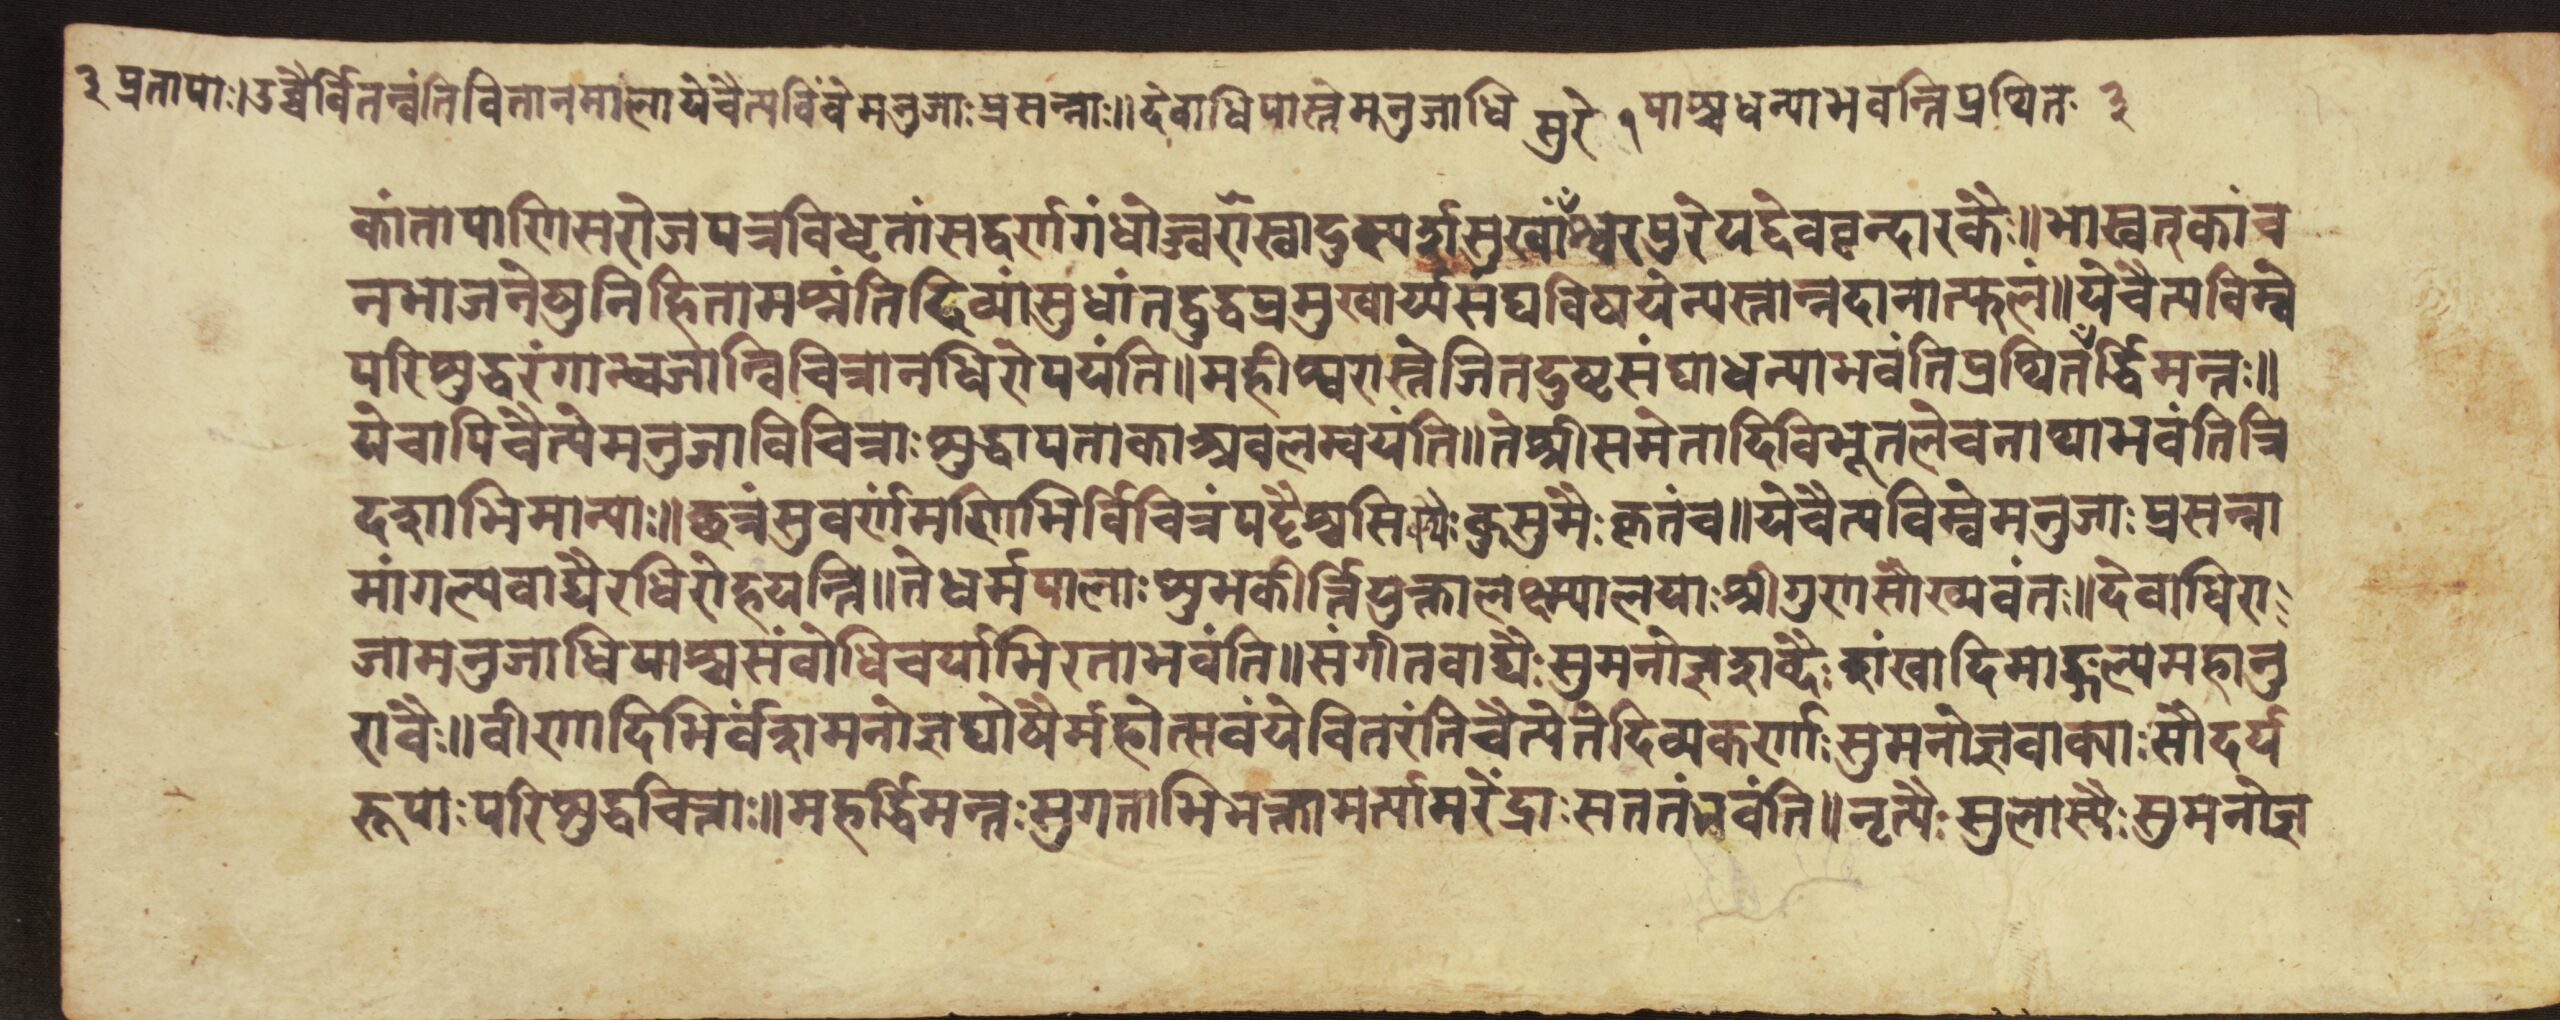 ३ प्रतापाः।उच्चैर्वितन्वंतिवितानमालायेचैत्यविंवेमनुजाःप्रसन्नाः॥देवाधिपास्तेमनुजाधि सुरे १ पाश्चधन्याभवन्तिप्रथित ३
कांतापाणिसरोजपत्रविधृतांसद्वर्णगंधोज्वरांस्वादुस्पर्शसुखांश्वरपुरेयद्देववृन्दारकैः॥भास्वत्कांच
नभाजनेषुनिहितामश्नंतिदिव्यांसुधांतद्बुद्धप्रमुखार्यसंघविषयेन्यस्तान्नदानात्फलं॥येचैत्यविम्वे
परिशुद्धरंगान्ध्वजान्विचित्रानधिरोपयंति॥महीश्वरास्तेजितदुष्टसंघाधन्याभवंतिप्रथितर्द्धिमन्तः॥
येचापिचैत्येमनुजाविचित्राःशुद्धापताकाअवलम्वयंति॥तेश्रीसमेतादिविभूतलेचनाथाभवंतित्रि
दशाभिमान्याः॥छत्रंसुवर्णमणिभिर्विचित्रंपट्टैश्चसि कुसुमैःकृतंच॥येचैत्यविम्वेमनुजाःप्रसन्ना
मांगल्यवाद्यैरधिरोहयन्ति॥तेधर्मपालाःशुभकीर्त्तियुक्तालक्ष्म्यालयाःश्रीगुणसौख्यवंतः॥देवाधिरा
जामनुजाधिपाश्चसंवोधिचर्याभिरताभवंति॥संगीतवाद्यैःसुमनोज्ञशव्दैःशंखादिमाङ्गल्यमहानु
रावैः॥वीणादिभिर्वंशमनोज्ञघोषैर्महोत्सवंयेवितरंतिचैत्येतेदिव्यकर्णाःसुमनोज्ञवाक्याःसौदर्य
रूपाःपरिशुद्धचित्ताः॥महर्द्धिमन्तःसुगताभिभक्तामर्त्यामरेंद्राःसततंभवंति॥नृत्यैःसुलास्यैःसुमनोज्ञ